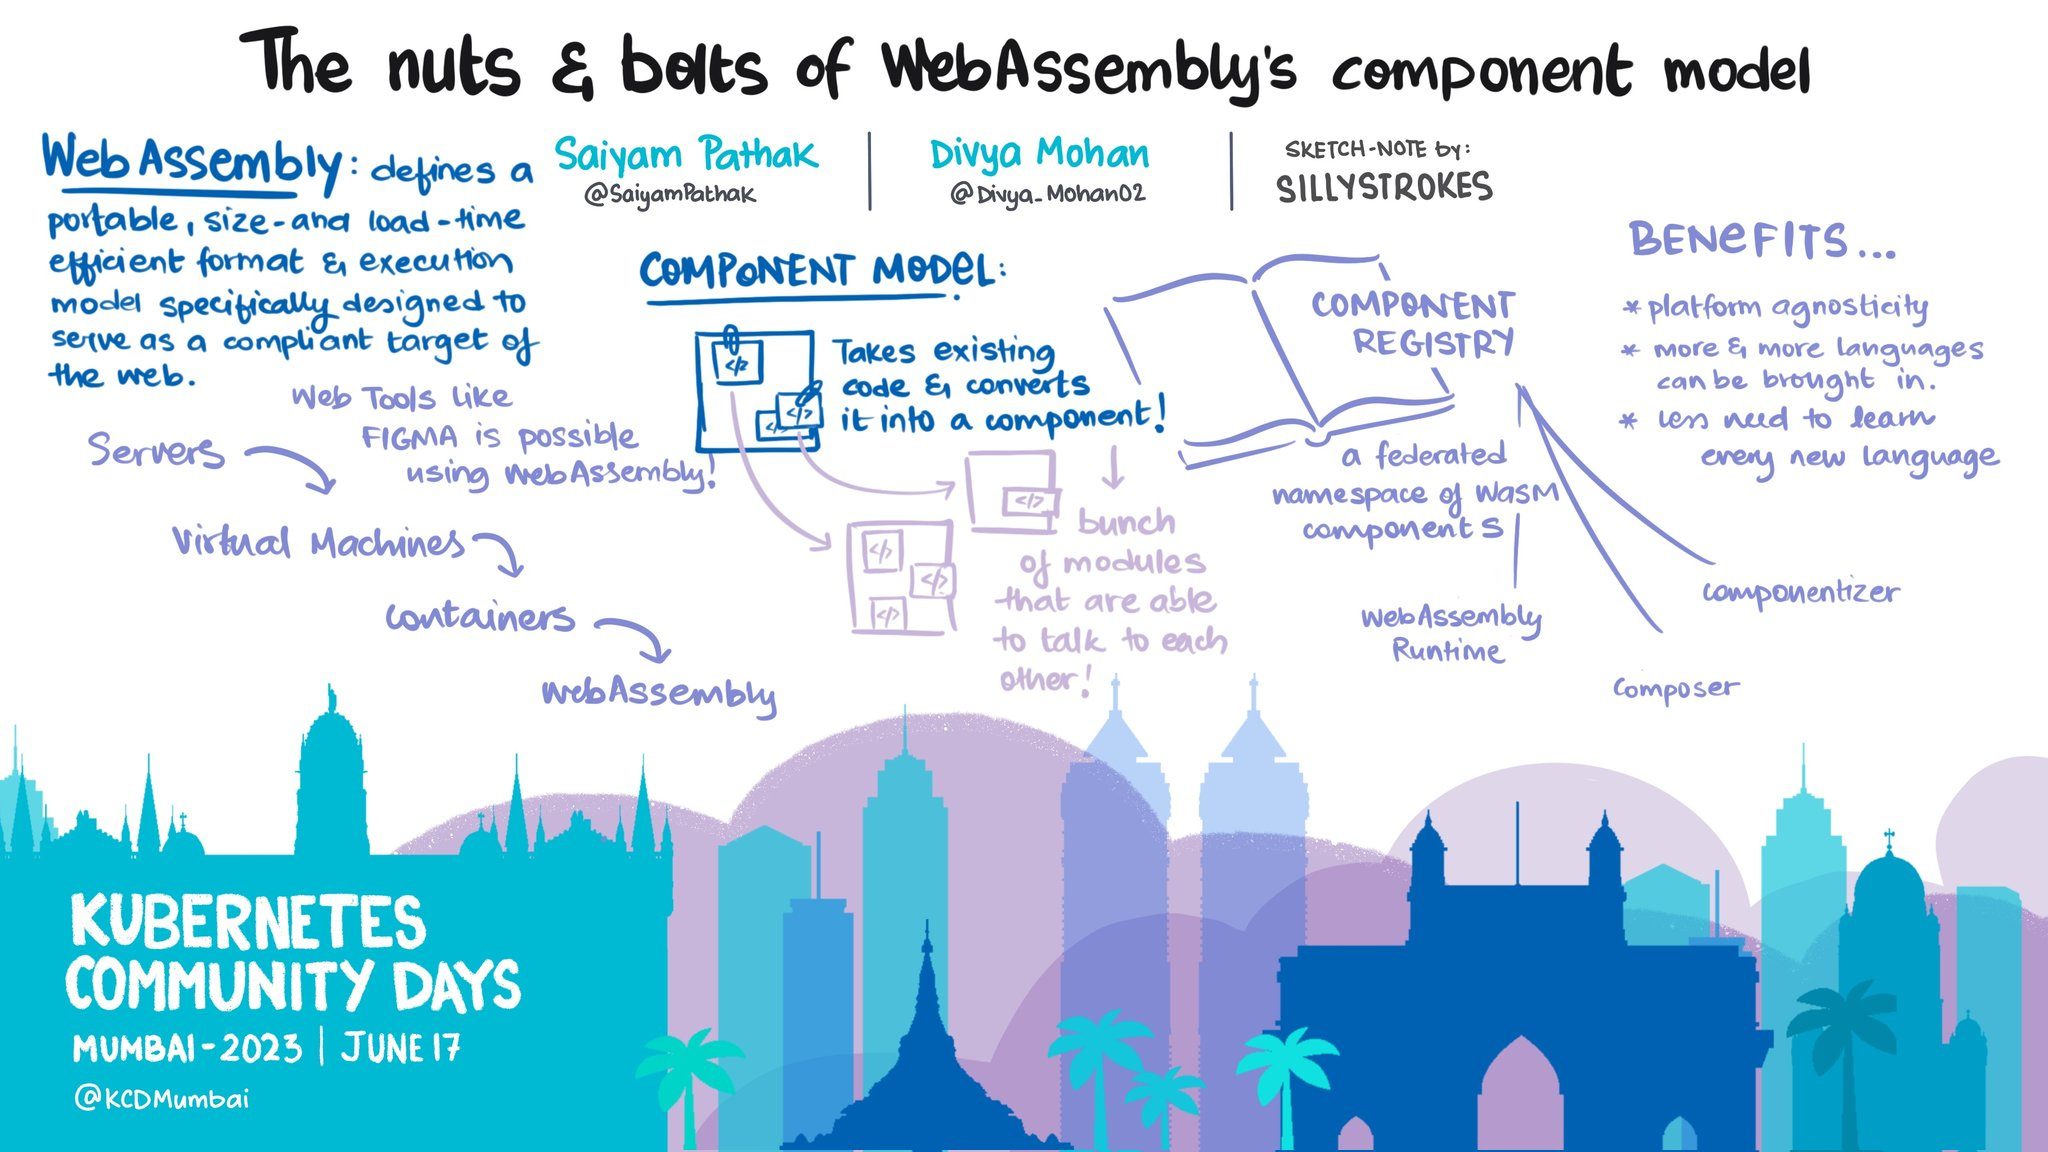 The nuts & bolts of WebAssembly's component model
Saiyam Pathak
@SaiyamPathak
Divya Mohan
@Divya_Mohan02
SKETCH-NOTE by:
SILLYSTROKES
WebAssembly: defines a
portable, size-and load-time
efficient format & execution
model specifically designed to
serve as a compliant target of
the web.
Web Tools like
FIGMA is possible
using WebAssembly!
Servers
Virtual Machines
Containers
WebAssembly
COMPONENT MODEL:
</>
</>
</>
Takes existing
code & converts
it into a component!
</>
</>
</>
</>
bunch
of modules
that are able
to talk to each
other!
COMPONENT
REGISTRY
a federated
namespace of WASM
components
WebAssembly
Runtime
Composer
Componentizer
BENEFITS...
* platform agnosticity
* more & more languages
can be brought in.
* Less need to learn
every new language
KUBERNETES
COMMUNITY DAYS
MUMBAI-2023 | JUNE 17
@KCDMumbai